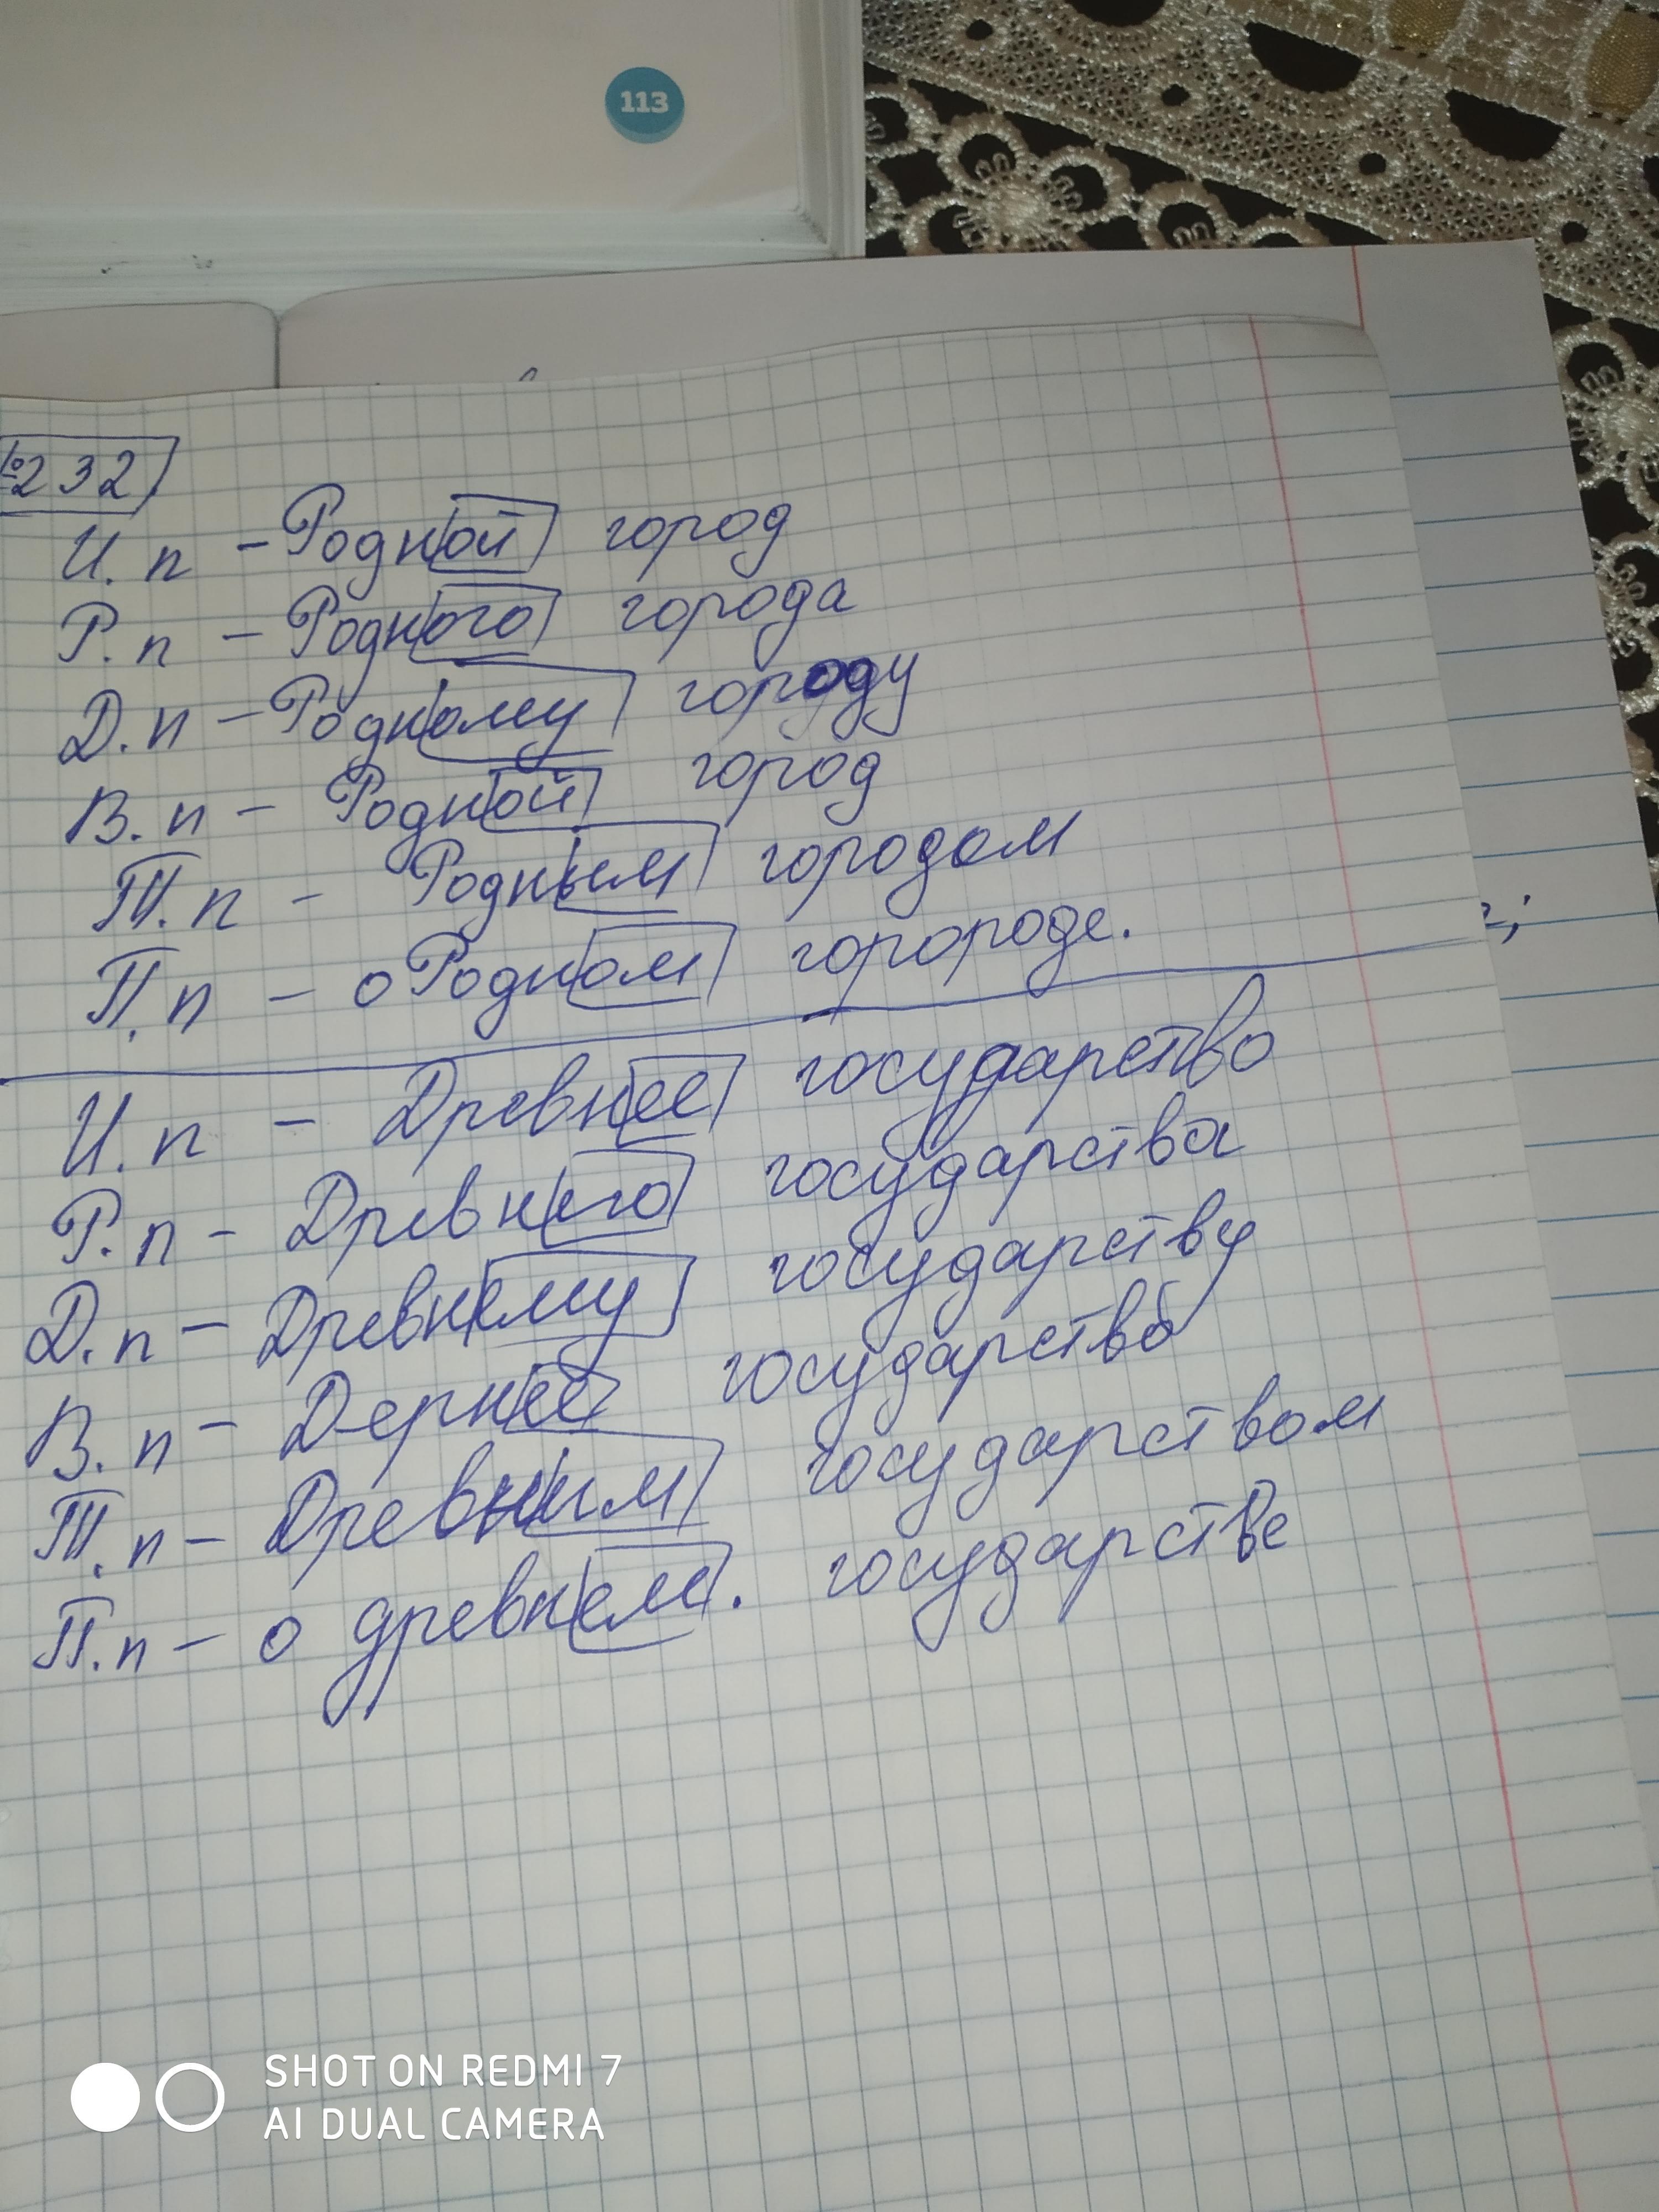 113
№232
И.п - Родной город
Р.п - Родного города
Д.п - Родному городу
В.п - Родной город
Т.п - Родным городом
П.п - о Родном горороде.
И.п - Древнее государство
Р.п - Древнего государства
Д.п - Древнему государству
В.п - Дернее государство
Т.п - Древним государством
П.п - о древнем. государстве
SHOT ON REDMI 7
AI DUAL CAMERA